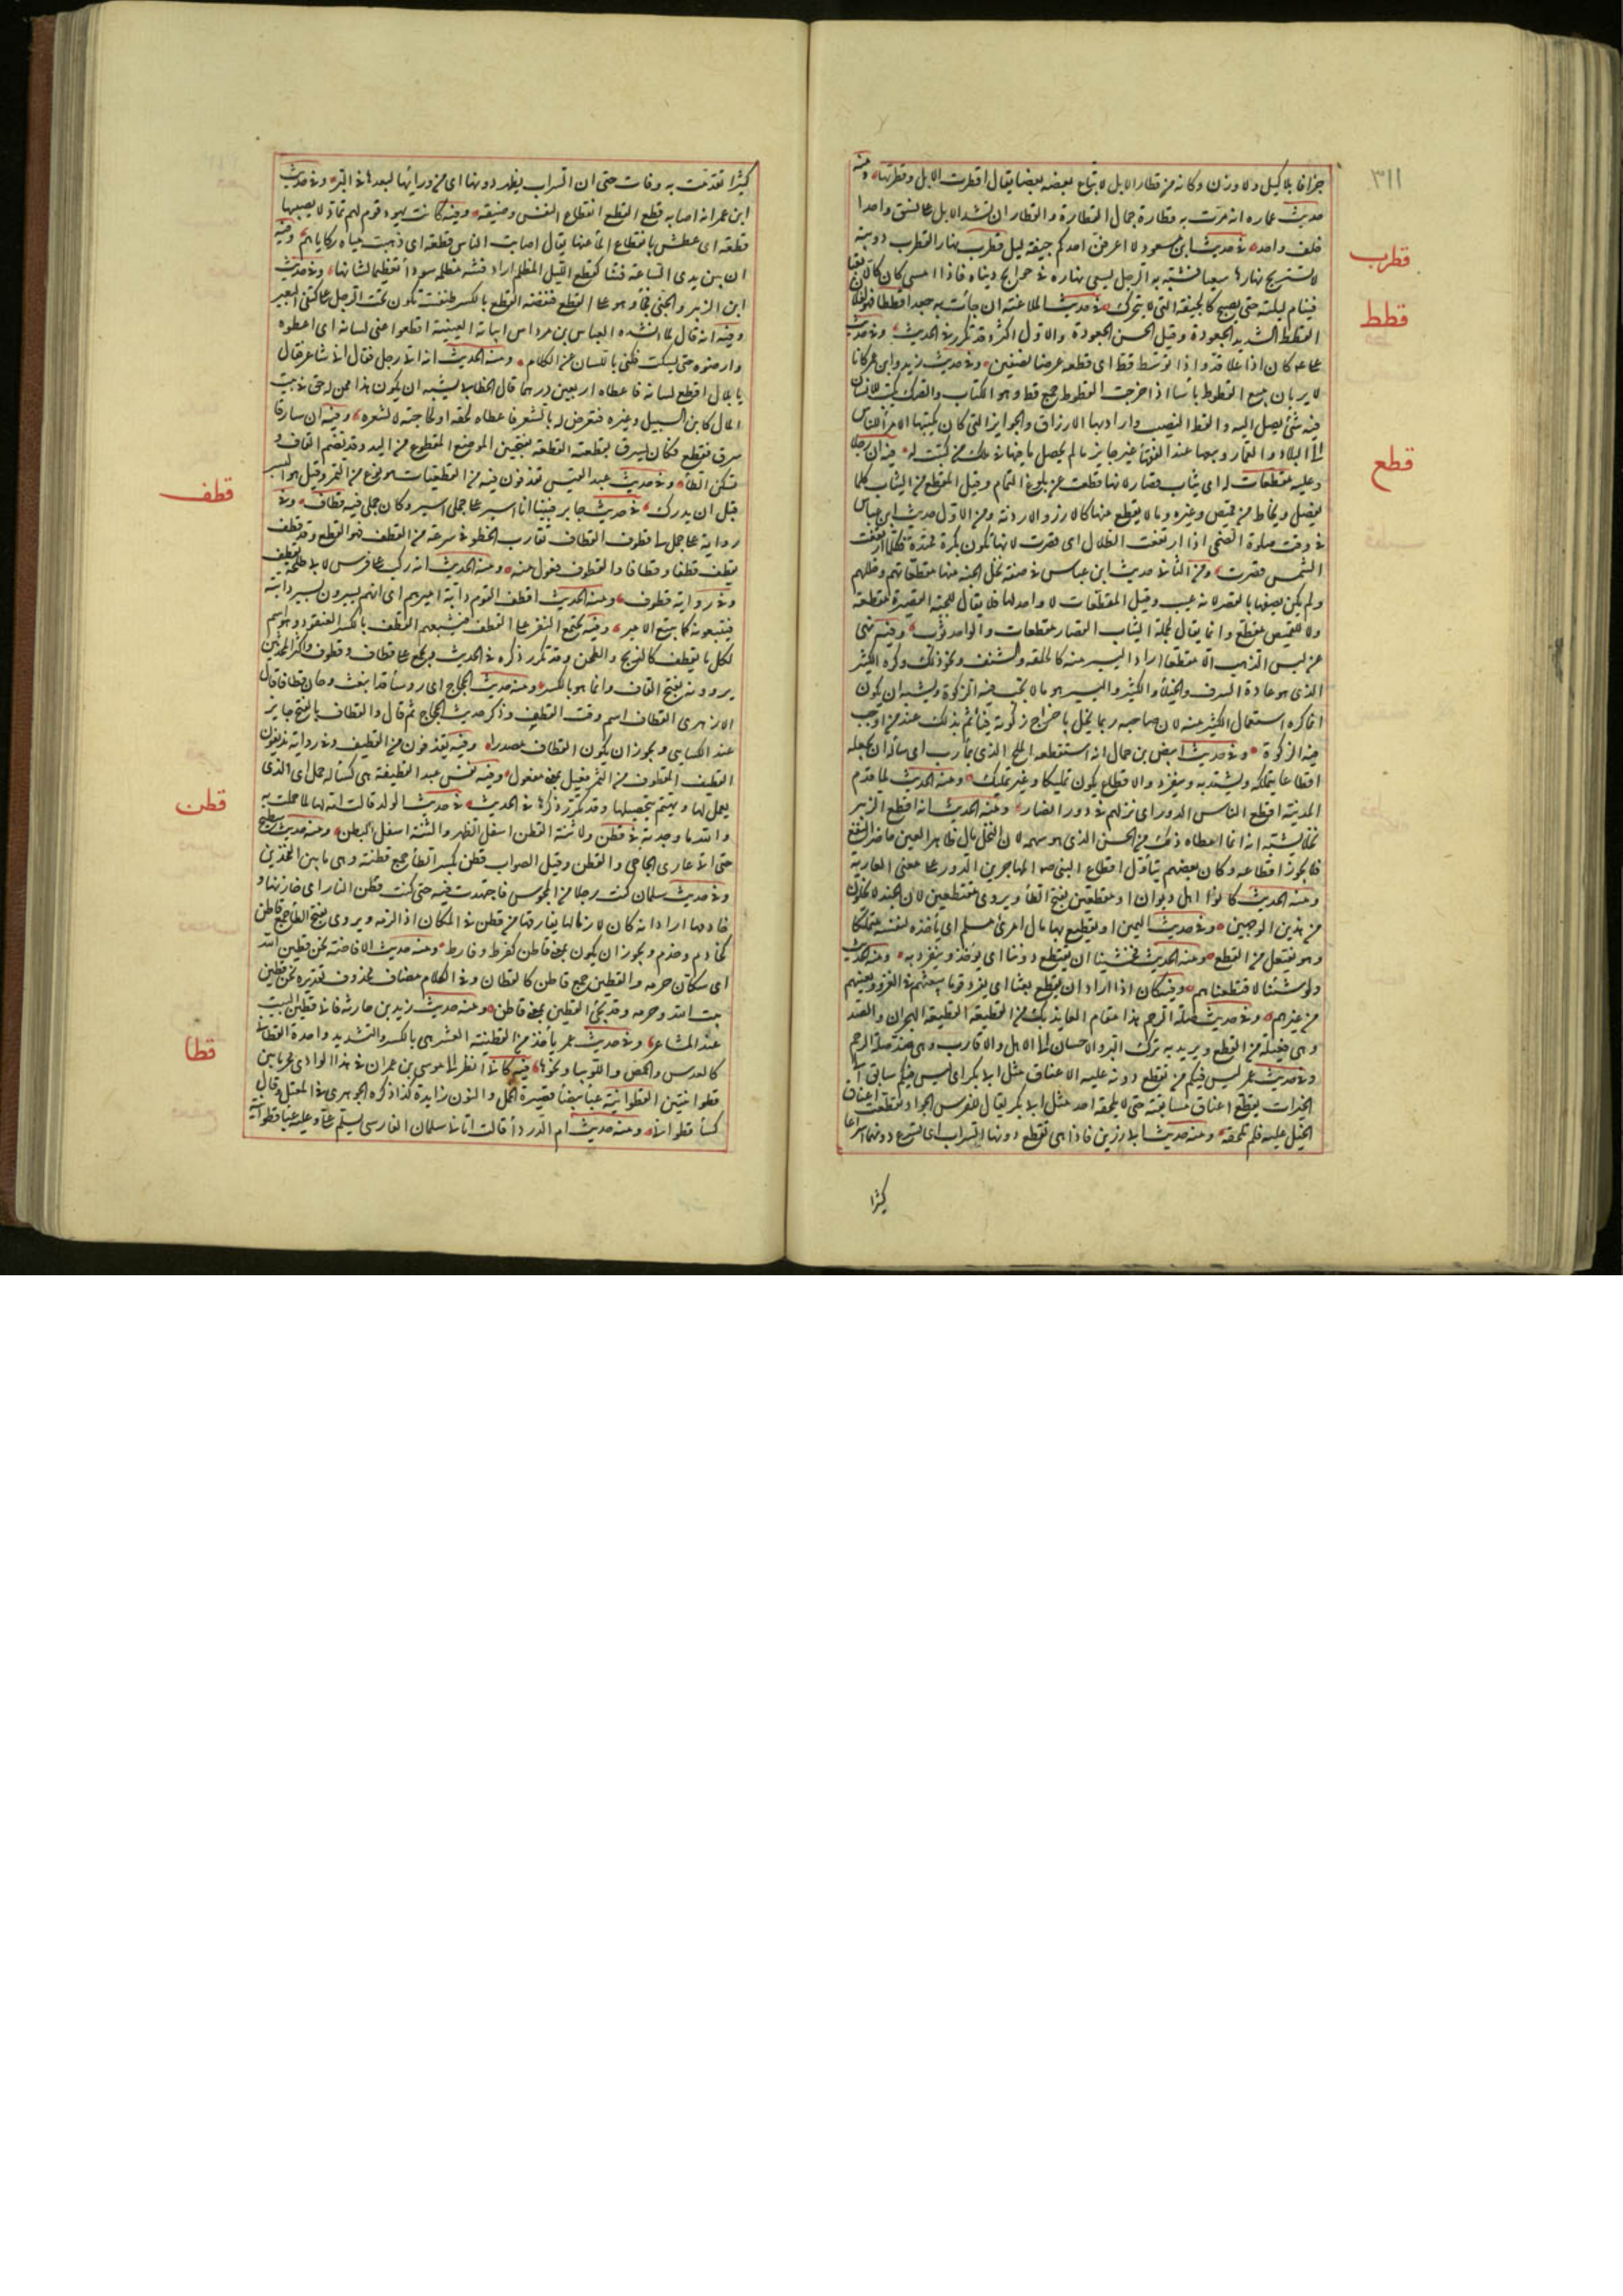 ٣١١
جزافا بلا كيل ولا وزن وكانه من قطار الابل لاتباع بعضه بعضا يقال اقطرت الابل وقطرتها ومنه
حديث عماره انه مرّت به قطارة جمال القطارة والقطار ان تشد الابل على نسق واحدا
خلف واحد في حديث ابن مسعود لا اعرفنّ احدكم جيفة ليل قطرب نهار القطرب دويبة
لا تستريح نهارها سعيا فشبه به الرجل يسعى نهاره في حوايج دنياه فاذا امسى كان كالا تعبا
فينام ليلته حتى يصبح كالجيفة التي لا يتحرك في حديث الملاعنة ان جاءت به جعدا قططا فهو لفلان
القطط الشديد الجعودة وقيل الحسن الجعودة والاول اكثر وقد تكرر في الحديث وفي حديث
على كان اذا علا قدّ واذا توسّط قطّ اى قطعه عرضا نصفين وفي حديث زيد وابن عمر كانا
لا يريان ببيع القطوط باسا اذا خرجت القطوط جمع قط وهو الكتاب والصك يكتب للانسان
فيه شئ يصل اليه والقط النصيب واراد بها الارزاق والجوايز التي كان يكتبها الامراء للناس
الى البلاد والعمّار وبيعها عند الفقهاء غير جايز ما لم يحصل ما فيها في ملك من كتبت له فيه ان رجلا
وعليه مقطعات له اى ثياب قصار لانها قطعت عن بلوغ التمام وقيل المقطع من الثياب كلما
يفصل ويخاط من قميص وغيره وما لا يقطع منها كالازر والاردية ومن الاول حديث ابن عباس
في وقت صلوة الضحى اذا ارتفعت الظلال اى قصرت لانها تكون بكرة ممتدة فكلما ارتفعت
الشمس قصرت ومن الثاني حديث ابن عباس في صفة نخل الجنة منها مقطعاتهم وحللهم
ولم يكن يصفها بالقصر لانه عيب وقيل المقطعات لا واحد لها فلا يقال للجبة القصيرة مقطعة
ولا للقميص مقطع وانما يقال لجملة الثياب القصار مقطعات والواحد ثوب وفيه نهى
عن لبس الذهب الا مقطعا اراد اليسير منه كالحلقة والشنف ونحو ذلك وكره الكثير
الذى هو عادة السرف والخيلاء والكثير واليسير هو ما لا تجب فيه الزكوة ويشبه ان يكون
انما كره استعمال الكثير منه لان صاحبه ربما بخل باخراج زكوته فيأثم بذلك عند من اوجب
فيه الزكوة وفي حديث ابيض بن حمال انه استقطعه الملح الذى بمأرب اى سأله ان يجعله
اقطاعا يتملكه ويستبد به وينفرد والاقطاع يكون تمليكا وغير تمليك ومنه الحديث لما قدم
المدينة اقطع الناس الدور اى انزلهم في دور الانصار ومنه الحديث انه اقطع الزبير
نخلا يشبه انه انما اعطاه ذلك من الخمس الذى هو سهمه لان النخل مال ظاهر العين حاضر النفع
فلا يجوز اقطاعه وكان بعضهم يتأوّل اقطاع النبى صم المهاجرين الدور على معنى العارية
ومنه الحديث كانوا اهل ديوان او مقطعين بفتح الطاء ويروى مقتطعين لان الجند لا يخلون
من هذين الوجهين وفي حديث اليمين او يقتطع بها مال امرئ مسلم اى يأخذه لنفسه متملكا
وهو يفتعل من القطع ومنه الحديث فخشينا ان يقتطع دوننا اى يؤخذ وينفرد به ومنه الحديث
ولو شئنا لاقتطعناهم وفيه كان اذا اراد ان يقطع بعثا اى يفرد قوما يبعثهم في الغزو ويعينهم
من غيرهم وفي حديث صلة الرحم هذا مقام العايذ بك من القطيعة القطيعة الهجران والصد
وهى فعيلة من القطع ويريد به ترك البر والاحسان الى الاهل والاقارب وهى ضد صلة الرحم
وفي حديث عمر ليس فيكم من تقطع دونه عليه الاعناق مثل ابى بكر اى ليس فيكم سابق الى
الخيرات يقطع اعناق مسابقيه حتى لا يلحقه احد مثل ابى بكر يقال للفرس الجواد تقطعت اعناق
الخيل عليه فلم تلحقه ومنه حديث ابى رزين فاذا هى تقطع دونها السراب اى تسرع دونها اسراعا
كثيرا
قطرب
قطط
قطع
كثيرا تقدمت به وفاتت حتى ان السراب يظهر دونها اى من ورائها لبعدها في البر وفي حديث
ابن عمر انه اصابه قطع القطع انقطاع النفس وضيقه وفيه كانت يهود قوم لهم ثمار لا يصيبها
قطعة اى عطش بانقطاع الماء عنها يقال اصابت الناس قطعة اى ذهبت مياه ركاياهم وفيه
ان بين يدى الساعة فتنا كقطع الليل المظلم اراد فتنة مظلمة سوداء تعظيما لشانها وفي حديث
ابن الزبير والجنى فجاء وهو على القطع فنفضه القطع بالكسر طنفسة تكون تحت الرجل على كتفى البعير
وفيه انه قال لما انشده العباس بن مرداس ابياته العينية اقطعوا عنى لسانه اى اعطوه
وارضوه حتى يسكت فكنى باللسان عن الكلام ومنه الحديث انه اتاه رجل فقال انى شاعر فقال
يا بلال اقطع لسانه فاعطاه اربعين درهما قال الخطابى يشبه ان يكون هذا ممن له حق في بيت
المال كابن السبيل وغيره فتعرض له بالشعر فاعطاه لحقه او لحاجته لا لشعره وفيه ان سارقا
سرق فقطع فكان يسرق بقطعته القطعة بفتحتين الموضع المقطوع من اليد وقد تضم القاف و
تسكن الطاء وفي حديث عبد القيس تقذفون فيه من القطيعاء هو نوع من التمر وقيل هو البسر
قبل ان يدرك في حديث جابر فبينا انا اسير على جملى اسير وكان جملى فيه قطاف وفي
رواية على جمل لنا قطوف القطاف تقارب الخطو في سرعة من القطف هو القطع وقد قطف
يقطف قطفا وقطافا والقطوف فعول منه ومنه الحديث انه ركب على فرس لابى طلحة يقطف
وفي رواية قطوف ومنه الحديث اقطف القوم دابة اميرهم اى انهم يسيرون بسير دابته
فيتبعونه كما يتبع الامير وفيه يجتمع النفر على القطف فيشبعهم القطف بالكسر العنقود وهو اسم
لكل ما يقطف كالذبح والطحن وقد تكرر ذكره في الحديث ويجمع على قطاف وقطوف واكثر المحدثين
يروونه بفتح القاف وانما هو بالكسر ومنه حديث الحجاج ارى رؤسا قد اينعت وحان قطافها قال
الازهرى القطاف اسم وقت القطف وذكر حديث الحجاج ثم قال والقطاف بالفتح جايز
عند الكسايى ويجوز ان يكون القطاف مصدرا وفيه يقذفون من القطيف وفي رواية تذيفون
القطيف المقطوف من التمر فعيل بمعنى مفعول وفيه تعس عبد القطيفة هى كساء له خمل اى الذى
يعمل لها ويهتم بتحصيلها وقد تكرر ذكرها في الحديث في حديث المولد قالت امه لما حملت به
والله ما وجدته في قطن ولا ثنة القطن اسفل الظهر والثنة اسفل البطن ومنه حديث سطيح
حتى اتى عارى الجاجى والقطن وقيل الصواب قطن بكسر الطاء جمع قطنة وهى ما بين الفخذين
وفي حديث سلمان كنت رجلا من المجوس فاجتهدت فيه حتى كنت قطن النار اى خازنها و
خادمها اراد انه كان لازما لها لا يفارقها من قطن في المكان اذا لزمه ويروى بفتح الطاء جمع قاطن
كخادم وخدم ويجوز ان يكون بمعنى قاطن كفرط وفارط ومنه حديث الافاضة نحن قطين الله
اى سكان حرمه والقطين جمع قاطن كالقطان وفي الكلام مضاف محذوف تقديره نحن قطين
بيت الله وحرمه وقد يجئ القطين بمعنى قاطن ومنه حديث زيد بن حارثة فانى قطين البيت
عند المشاعر وفي حديث عمر يأخذ من القطنية العشر هى بالكسر والتشديد واحدة القطانى
كالعدس والحمص واللوبيا ونحوها فيه كانى انظر الى موسى بن عمران في هذا الوادى محرما بين
قطوانيتين القطوانية عباءة بيضاء قصيرة الخمل والنون زايدة كذا ذكره الجوهرى في المعتل وقال
كساء قطوانى ومنه حديث ام الدرداء قالت اتانى سلمان الفارسى يسلم على وعليه عباءة قطوانية
قطف
قطن
قطا